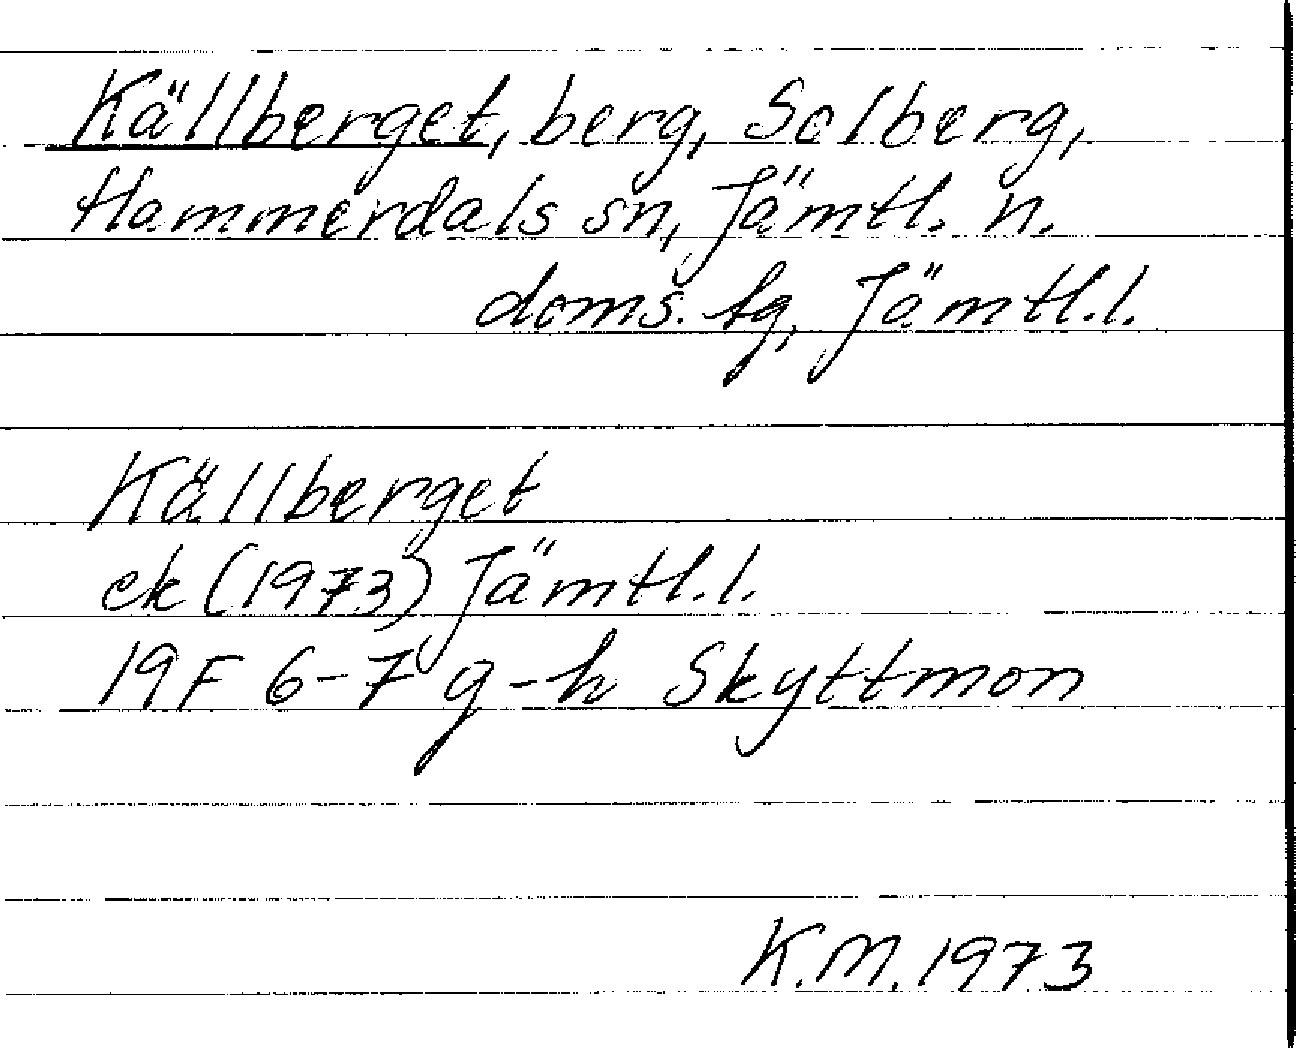 Källberget, berg, Solberg,
Hammerdals sn, Jämtl. n.
doms. tg, Jämtl. l.
Källberget
ek (1973) Jämtl. l.
19F 6-7 g-h Skyttmon
K.M. 1973